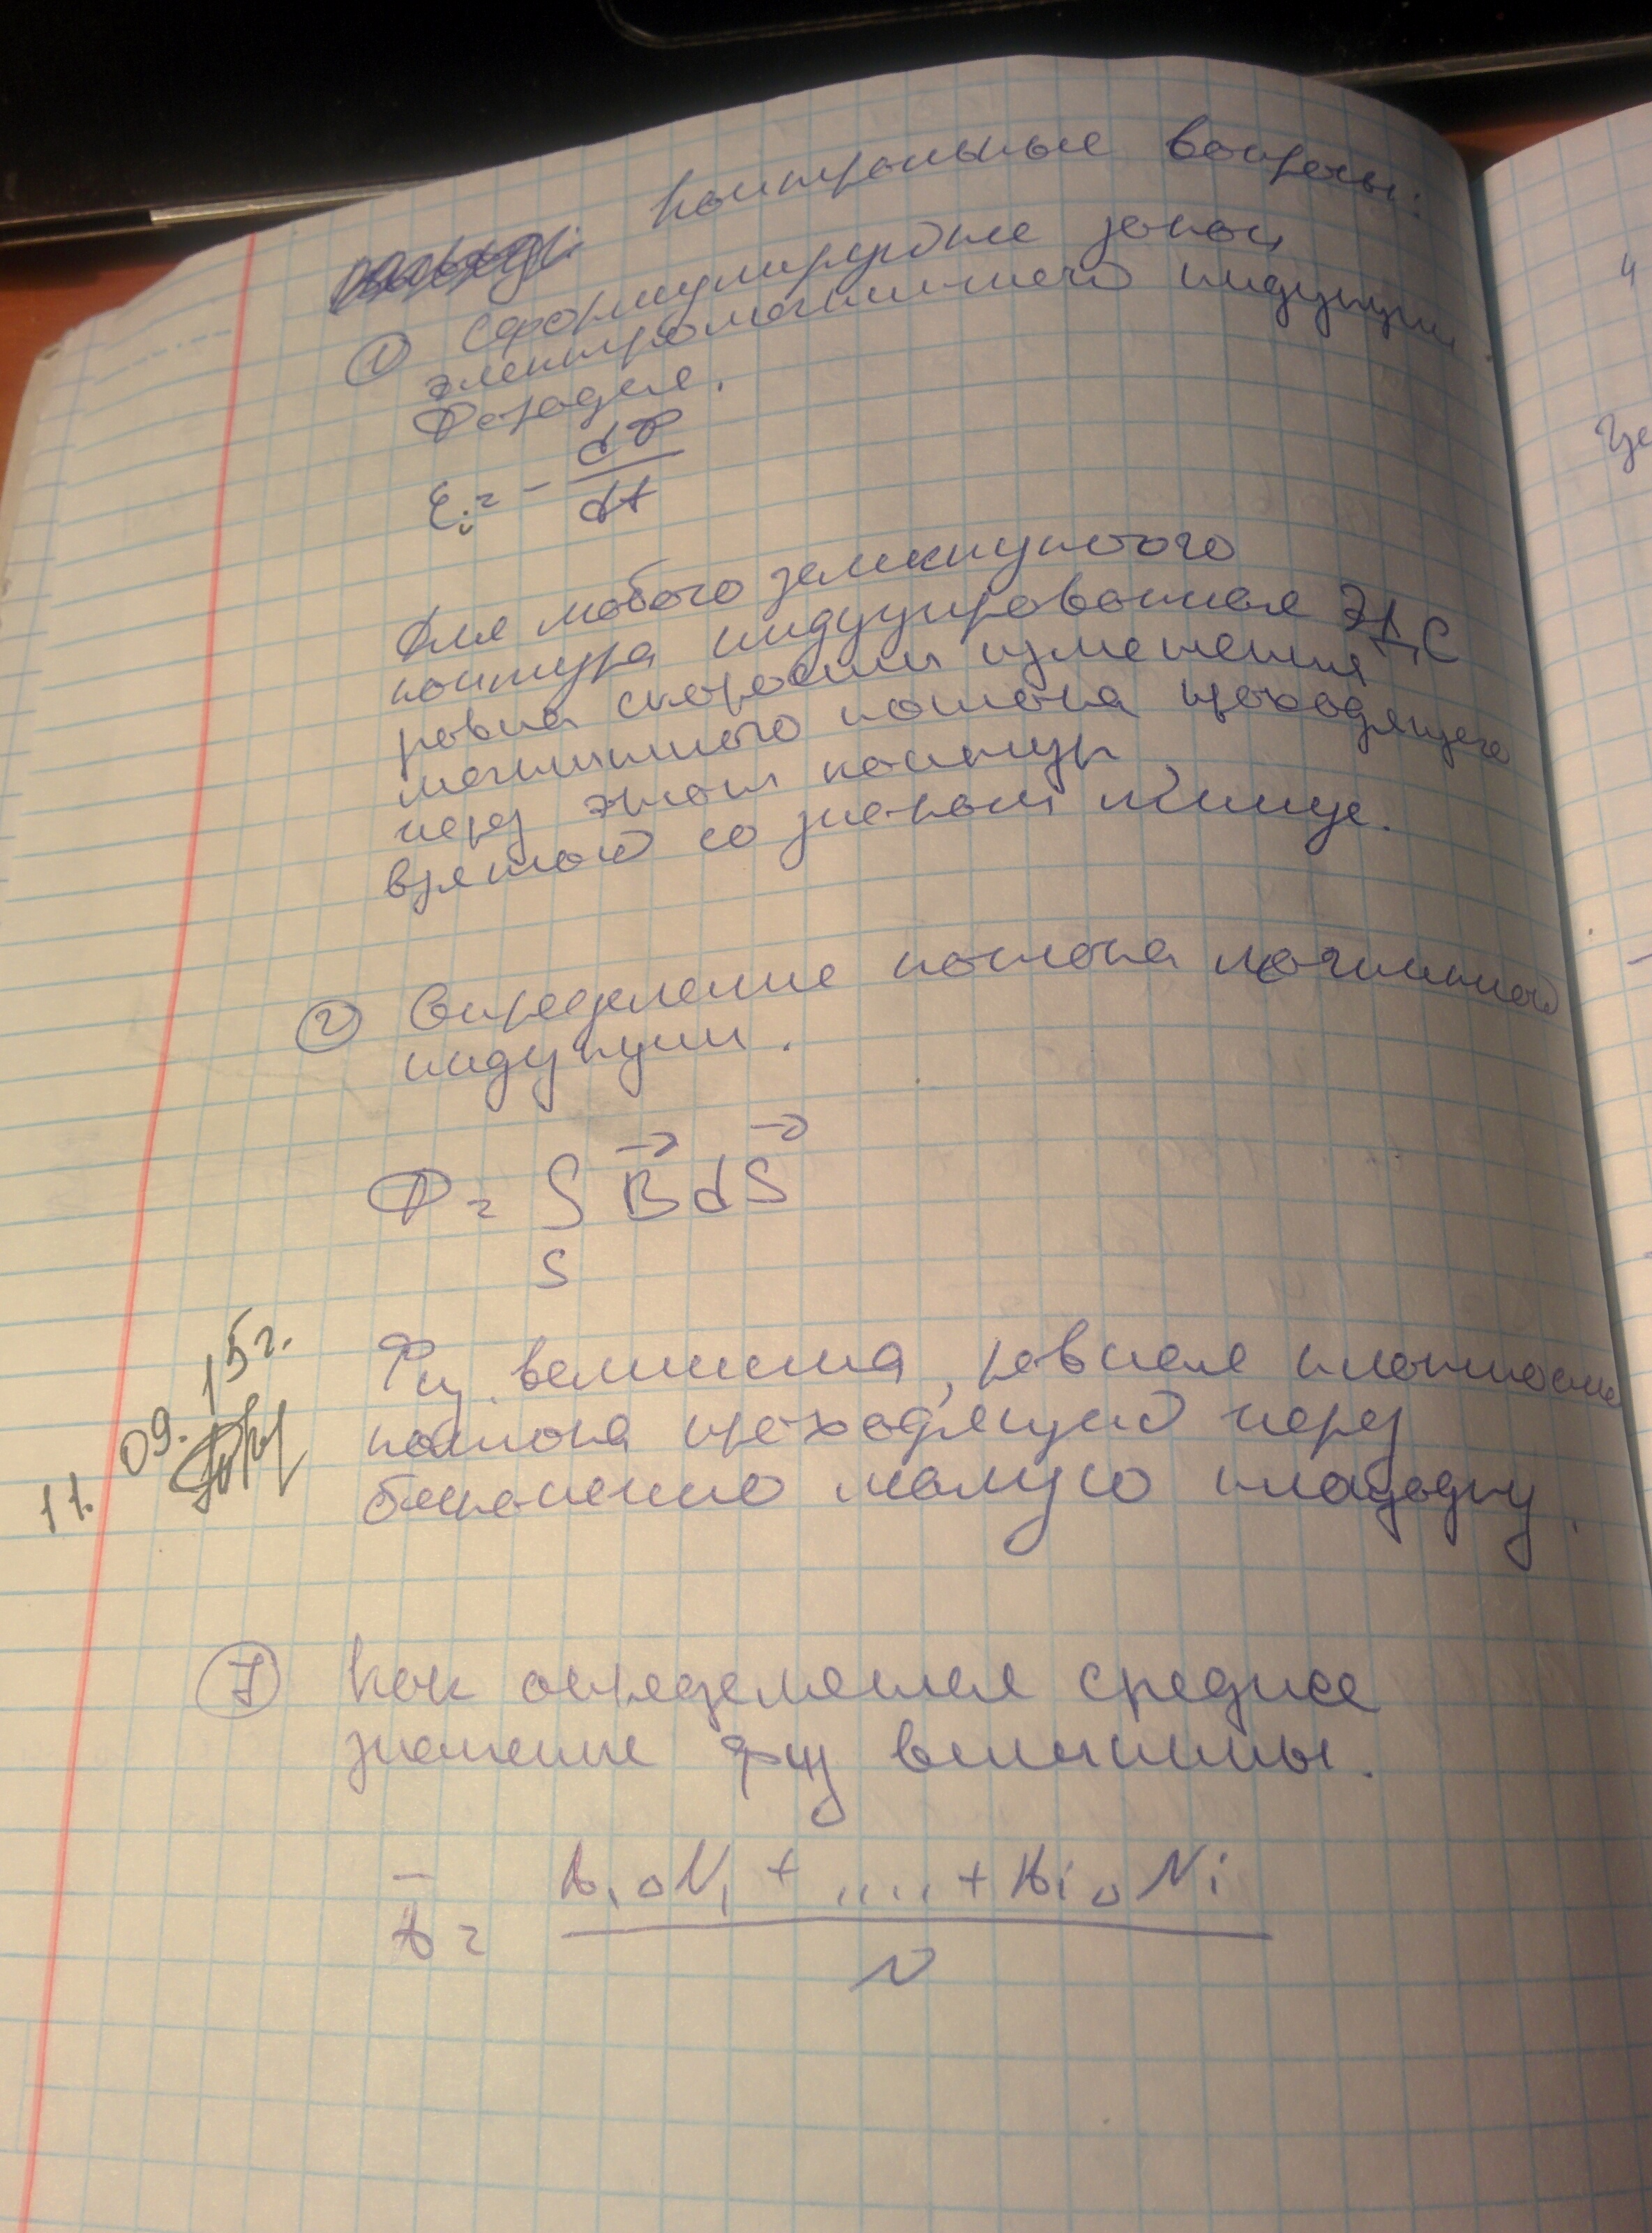 Контрольные вопросы:
① Сформулируйте закон
электромагнитного индукции
Фарадея.
εᵢ = - dФ/dt
Для любого замкнутого
контура индуцированная ЭДС
равна скорости изменения
магнитного потока проходящего
через этот контур
взятой со знаком минус.
② Определение потока магнитной
индукции.
Ф = ∫ₛ B⃗ dS⃗
11. 09. 15г.
Физ. величина, равная плотности
потока проходящий через
бесконечно малую площадку.
⑦ Как определяется среднее
значение физ величины.
N₁ + .... + Nᵢ
N